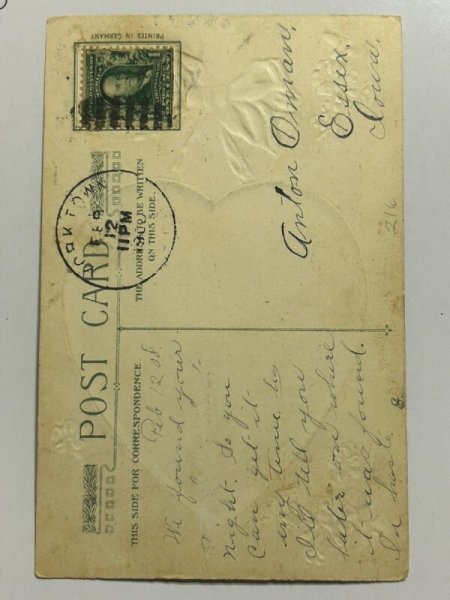 PRINTED IN GERMANY
POST CARD
THIS SIDE FOR CORRESPONDENCE
THE ADDRESS TO BE WRITTEN
ON THIS SIDE.
FEB
12
11 PM
Feb 12 08.
We found your
Night. So you
can get it
eny time,
I'll tell you
later on where
it was found.
In haste. B
Anton
Essex,
Iowa.
216